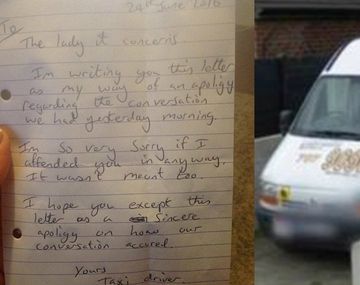 24th June 2016
To
The lady it concerns
I'm writing you this letter
as my way of an apoligy
regarding the conversation
we had yesterday morning.
I'm so very sorry if I
affended you in anyway.
It wasn't meant too.
I hope you except this
letter as a sincere
apoligy on how our
conversation accured.
Yours
Taxi driver.